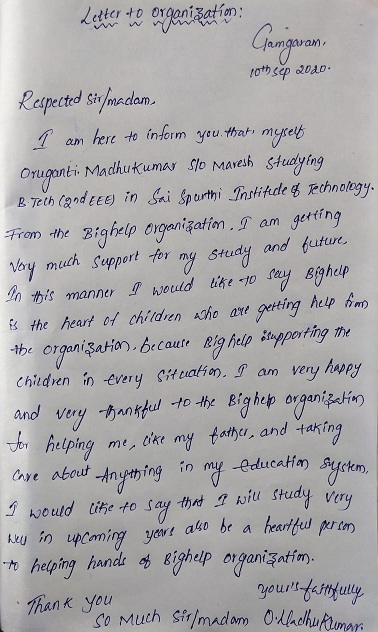 Letter to organization:
Gamgaram,
10th sep 2020.
Respected sir/madam,
I am here to inform you that, myself
Oruganti. Madhukumar s/o Maresh studying
B.Tech (2nd EEE) in Sai Spurthi Institute of Technology.
From the Bighelp organization, I am getting
Very much support for my study and future,
In this manner I would like to say Bighelp
is the heart of children who are getting help from
the organization, because Bighelp supporting the
children in every situation, I am very happy
and very thankful to the Bighelp organization
for helping me, like my father, and taking
Care about Anything in my Education system,
I would like to say that I will study very
well in upcoming years also be a heartful person
to helping hands of Bighelp organization.
your's faithfully
Thank you
So Much Sir/madam O.Madhu Kumar.